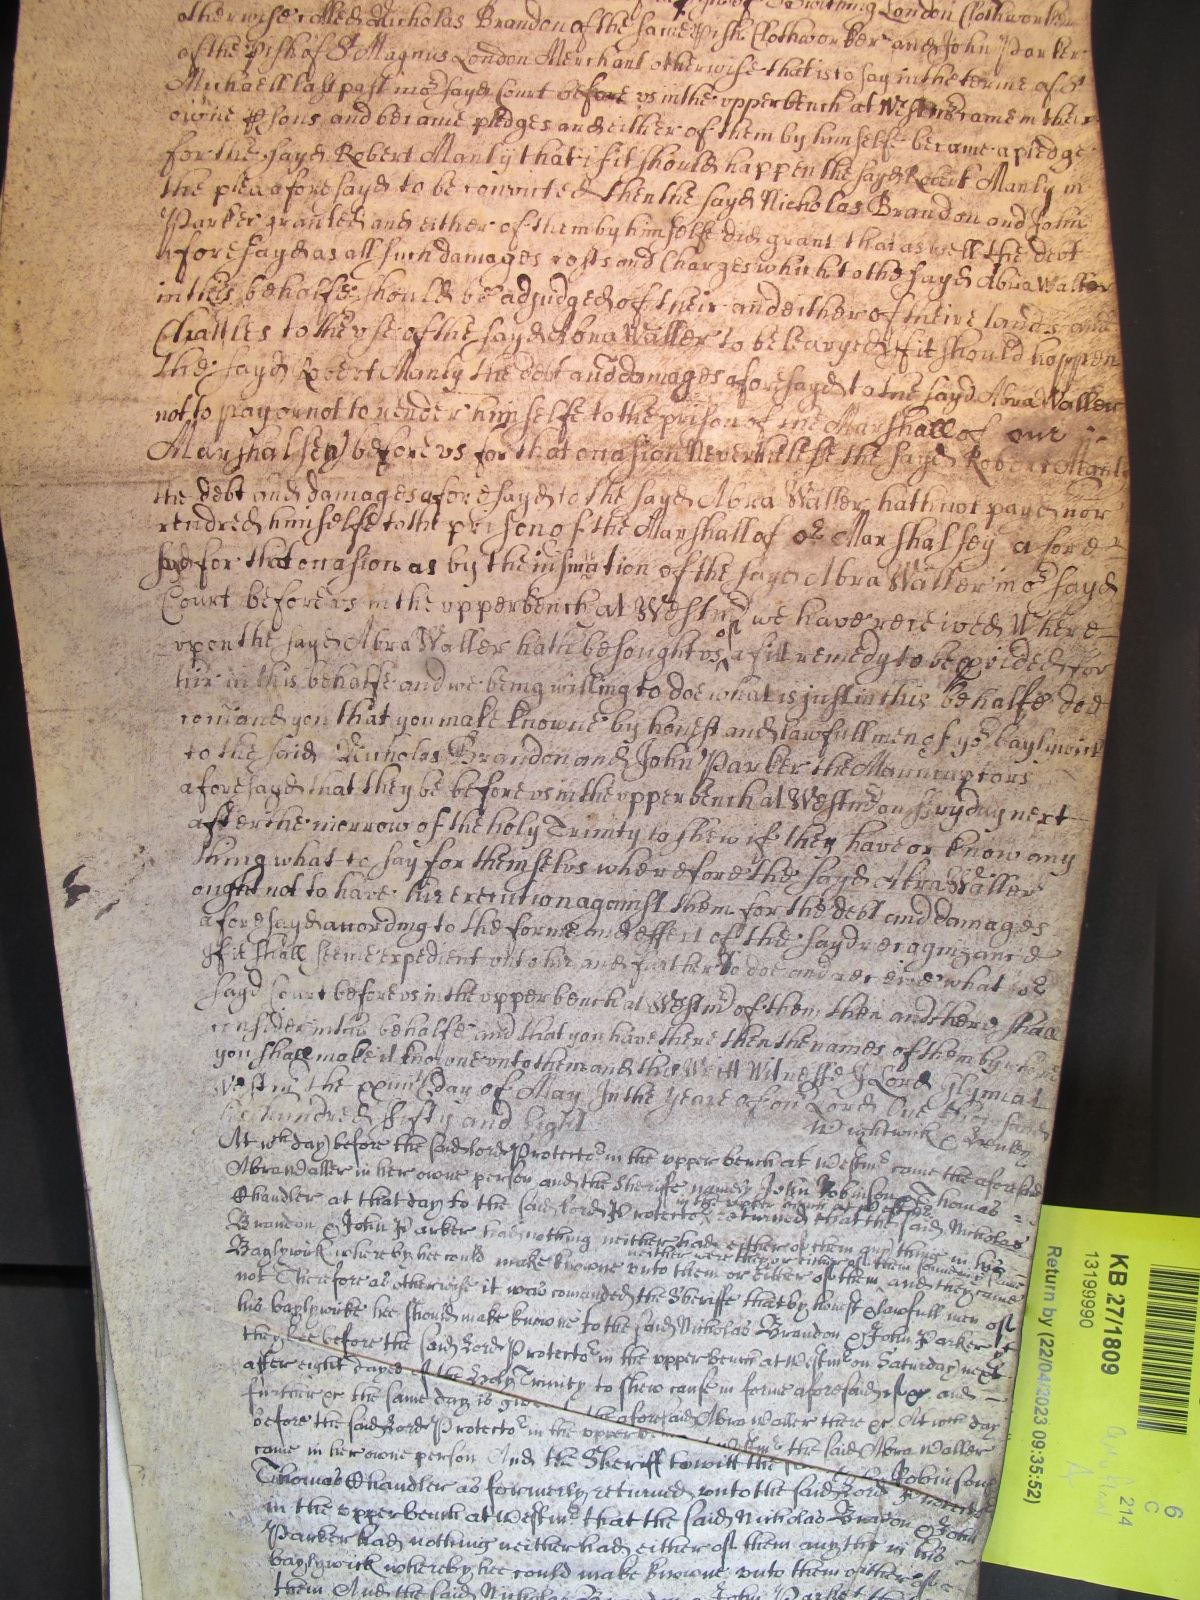 otherwise called Nicholas Brandon of the same pish Clothworker and John Parker
of the pish of St Magnus London Merchant otherwise that is to say in the terme of St
Michaell last past in or sayd Court before us in the upper bench at Westmr came in their
owne psons and became pledges and either of them by himselfe became a pledge
for the sayd Robert Manly that if it should happen the sayd Robert Manly in
the plea aforesayd to be convicted then the sayd Nicholas Brandon and John
Parker granted and either of them by himselfe did grant that as well the debt
aforesayd as all such damages costs and Charges which to the sayd Abra Waller
in this behalfe should be adjudged of their and either of theire lands and
Chattles to the use of the sayd Abra Waller to be leavyed if it should happen
the sayd Robert Manly the debt and damages aforesayd to the sayd Abra Waller
not to pay or not to render himselfe to the prison of the Marshall of our
Marshalsey before us for that occasion Neverthelesse the sayd Robert Manly
the debt and damages aforesayd to the sayd Abra Waller hath not payd nor
rendred himselfe to the prison of the Marshall of or Marshalsey afore
sayd for that occasion as by the information of the sayd Abra Waller in or sayd
Court before us in the upper bench at Westmr we have received Where
upon the sayd Abra Waller hath besought us of a fitt remedy to be pvided for
her in this behalfe and we being willing to doe what is just in this behalfe doe
comand you that you make knowne by honest and lawfull men of yor baylywick
to the said Nicholas Brandon and John Parker the Manucaptors
aforesayd that they be before us in the upper bench at Westmr on Fryday next
after the morrow of the holy Trinity to shew if they have or know any
thing what to say for themselves wherefore the sayd Abra Waller
ought not to have his execution against them for the debt and damages
aforesayd according to the forme and effect of the sayd recognizance
If it shall seeme expedient unto her and further to doe and receive what or
sayd Court before us in the upper bench at Westmr of them then and there shall
consider in this behalfe and that you have there then the names of them by whome
you shall make it knowne unto them and this Writt Witnesse Lord Glynn at
Westmr the day of May In the yeare of our Lord One thousand
hundred fifty and Eight Wightwick &
At wch day before the said Lord Protector in the upper bench at Westmr came the aforesaid
Abra Waller in her owne person and the Sheriffe namely John Robinson & Thomas
Chandler at that day to the said Lord Protector in the upper bench at Westmr returned that the said Nicholas
Brandon & John Parker had nothing neither had either of them any thing in his
Baylywick whereby hee could make knowne unto them or either of them neither were they or either of them found in the same and they came
not Therefore as otherwise it was comanded the Sheriffe that by honest & lawfull men of
his baylywicke hee should make knowne to the said Nicholas Brandon & John Parker yt
they bee before the said Lord Protector in the upper bench at Westmr on Saturday next
after eight dayes of the Holy Trinity to shew cause in forme aforesaid if &c and
further &c the same day is given to the aforesaid Abra Waller there &c At wch day
before the said Lord Protector in the upper bench at Westmr the said Abra Waller
came in her owne person And the Sheriff to witt the John Robinson
Thomas Chandler as formerly returned unto the said Lord Protector
in the upper bench at Westmr that the said Nicholas Brandon & John
Parker had nothing neither had either of them any thing in his
baylywick whereby hee could make knowne unto them or either of
them And the said Nicholas Brandon John Parker
KB 27/1809
13199990
Return by (22/04/2023 09:35:52)
6
C
214